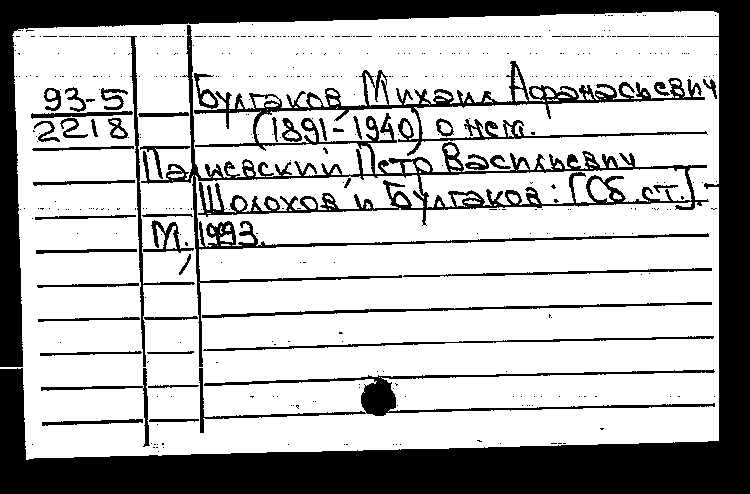 93-5 Булгаков, Михаил Афанасьевич
2218 (1891-1940) о нем.
Палиевский, Петр Васильевич
Шолохов и Булгаков: [Сб. ст.].-
М., 1993.